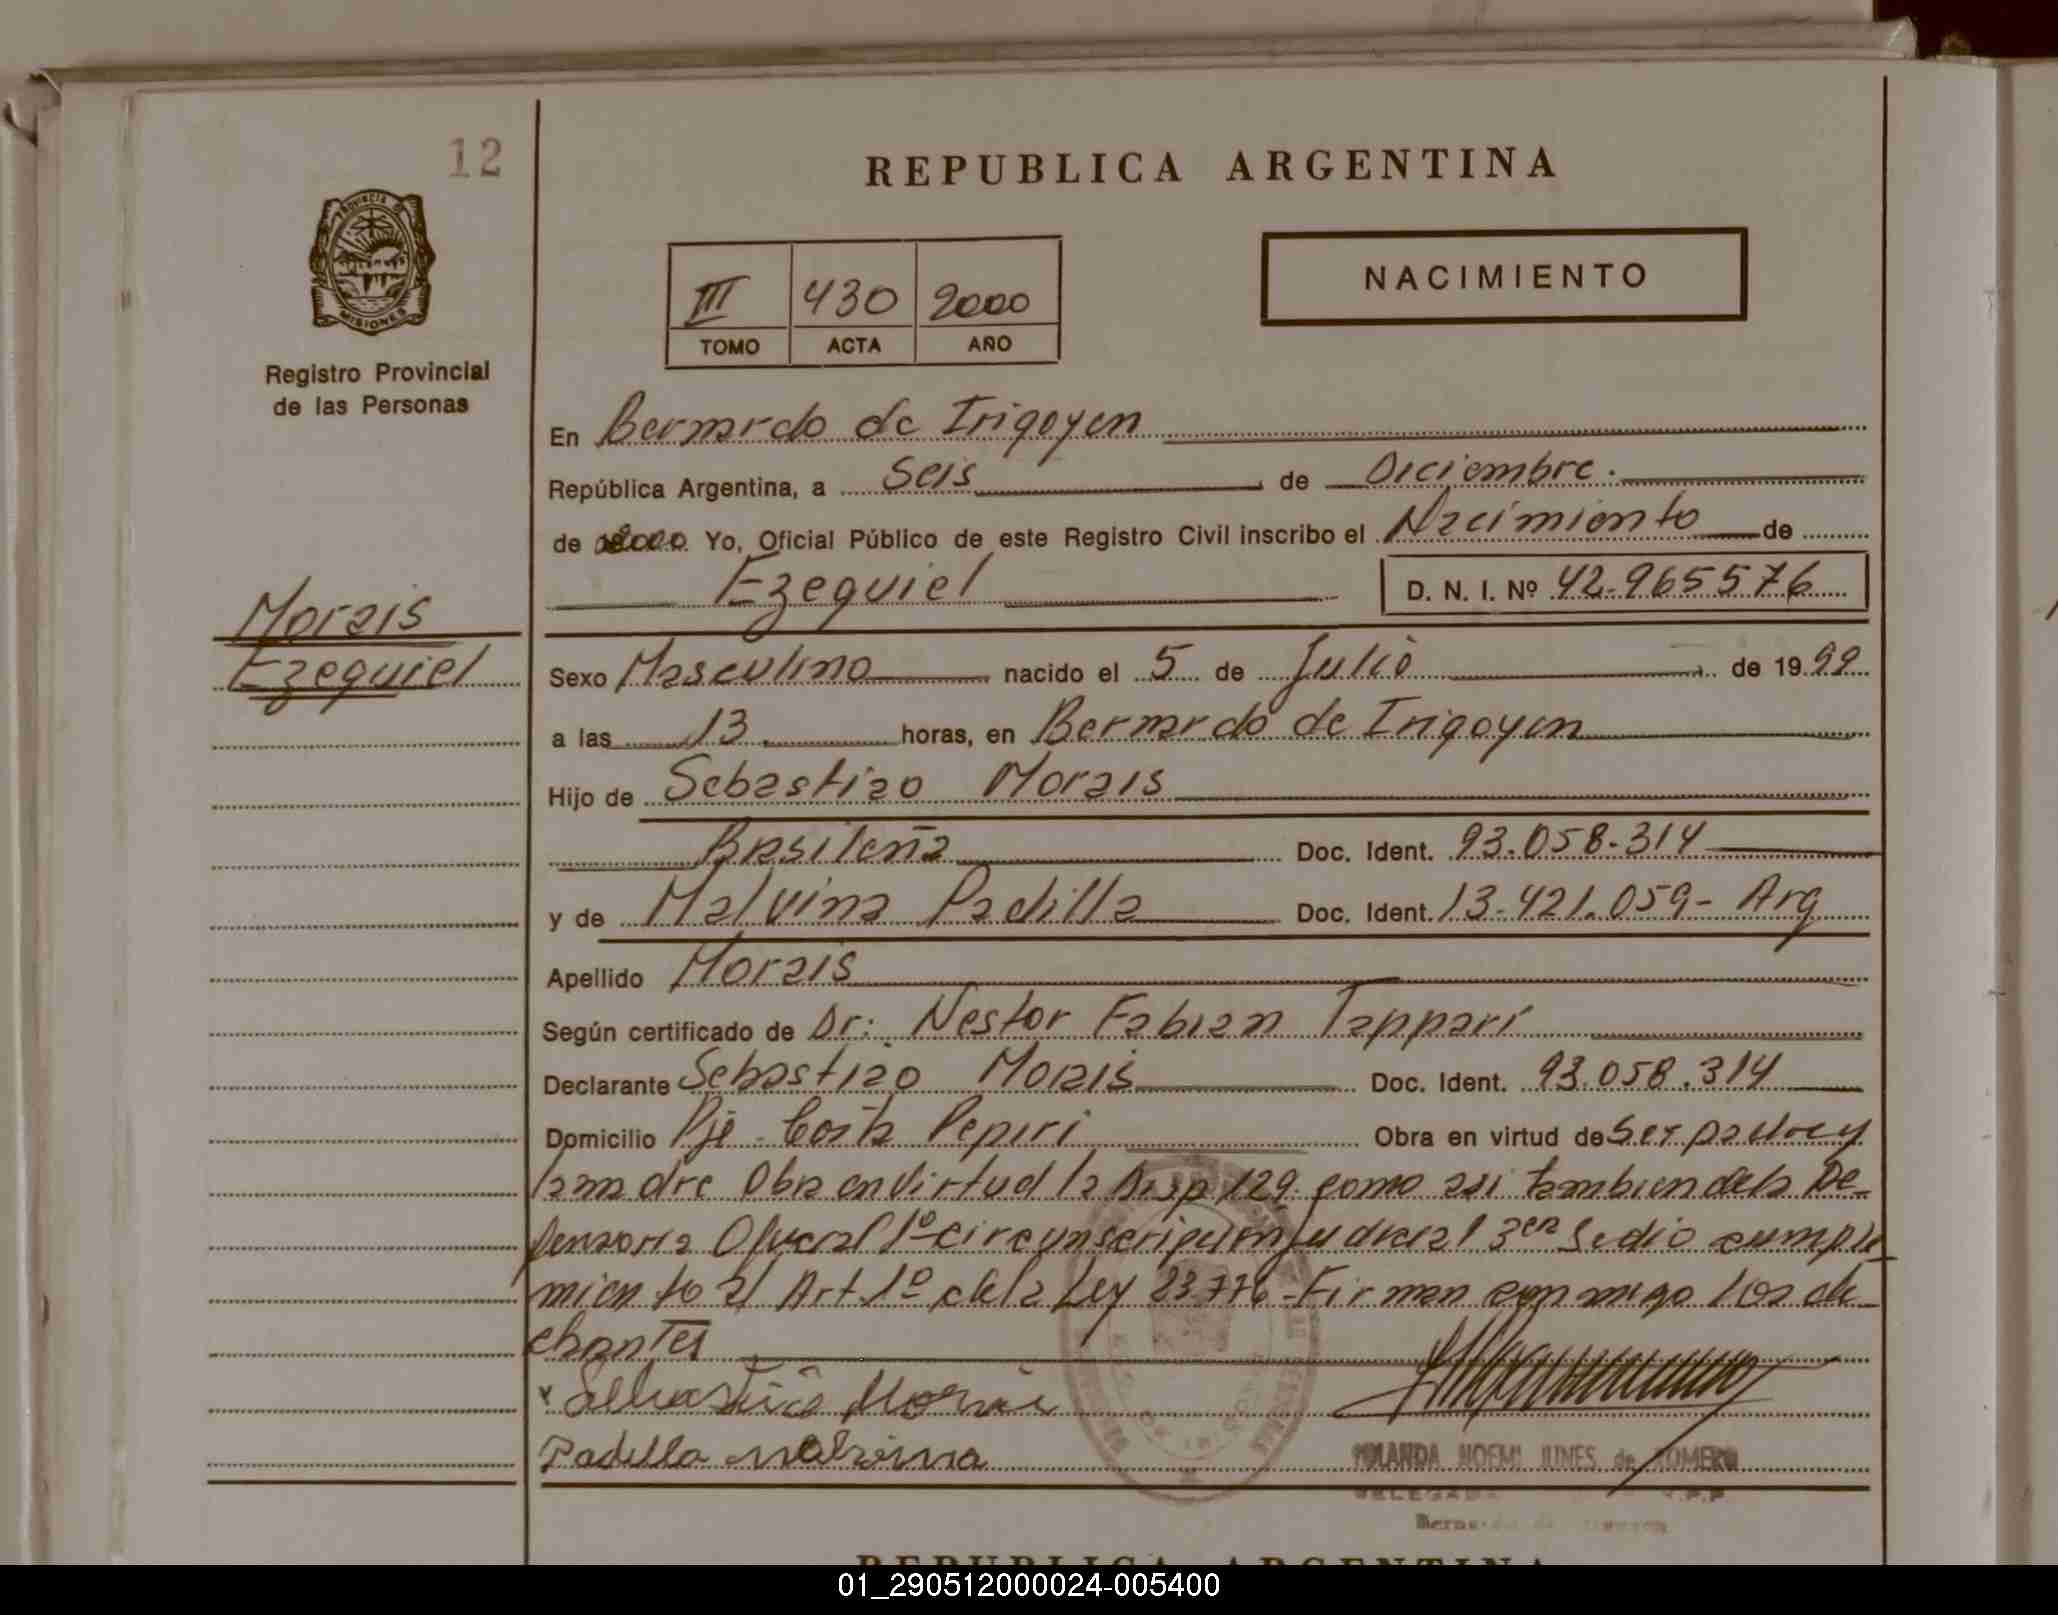 12
REPUBLICA ARGENTINA
PROVINCIA DE
MISIONES
III 430 2000
TOMO ACTA AÑO
NACIMIENTO
Registro Provincial
de las Personas
En Bernardo de Irigoyen
República Argentina, a Seis de Diciembre.
de 2000 Yo, Oficial Público de este Registro Civil inscribo el Nacimiento de
Ezequiel D. N. I. Nº 42.965576
Morais
Ezequiel
Sexo Masculino nacido el 5 de Julio de 1999
a las 13 horas, en Bernardo de Irigoyen
Hijo de Sebastiao Morais
Brasileña Doc. Ident. 93.058.314
y de Malvina Padilla Doc. Ident. 13.421.059- Arg
Apellido Morais
Según certificado de Dr: Nestor Fabian Tappari
Declarante Sebastiao Morais Doc. Ident. 93.058.314
Domicilio Pje Costa Pepiri Obra en virtud de Ser padre y
la madre Obra en Virtud la Disp 129. como asi tambien de la De-
fensoria Oficial 1º circunscripcion Judicial 3era Se dio cumpli
miento al Art 1º de la Ley 23.776 - Firman conmigo los de-
clarantes
x Sebastião Morais
Padilla Malvina
NOEMI JUNES de ROMERO
REPUBLICA ARGENTINA
01_290512000024-005400